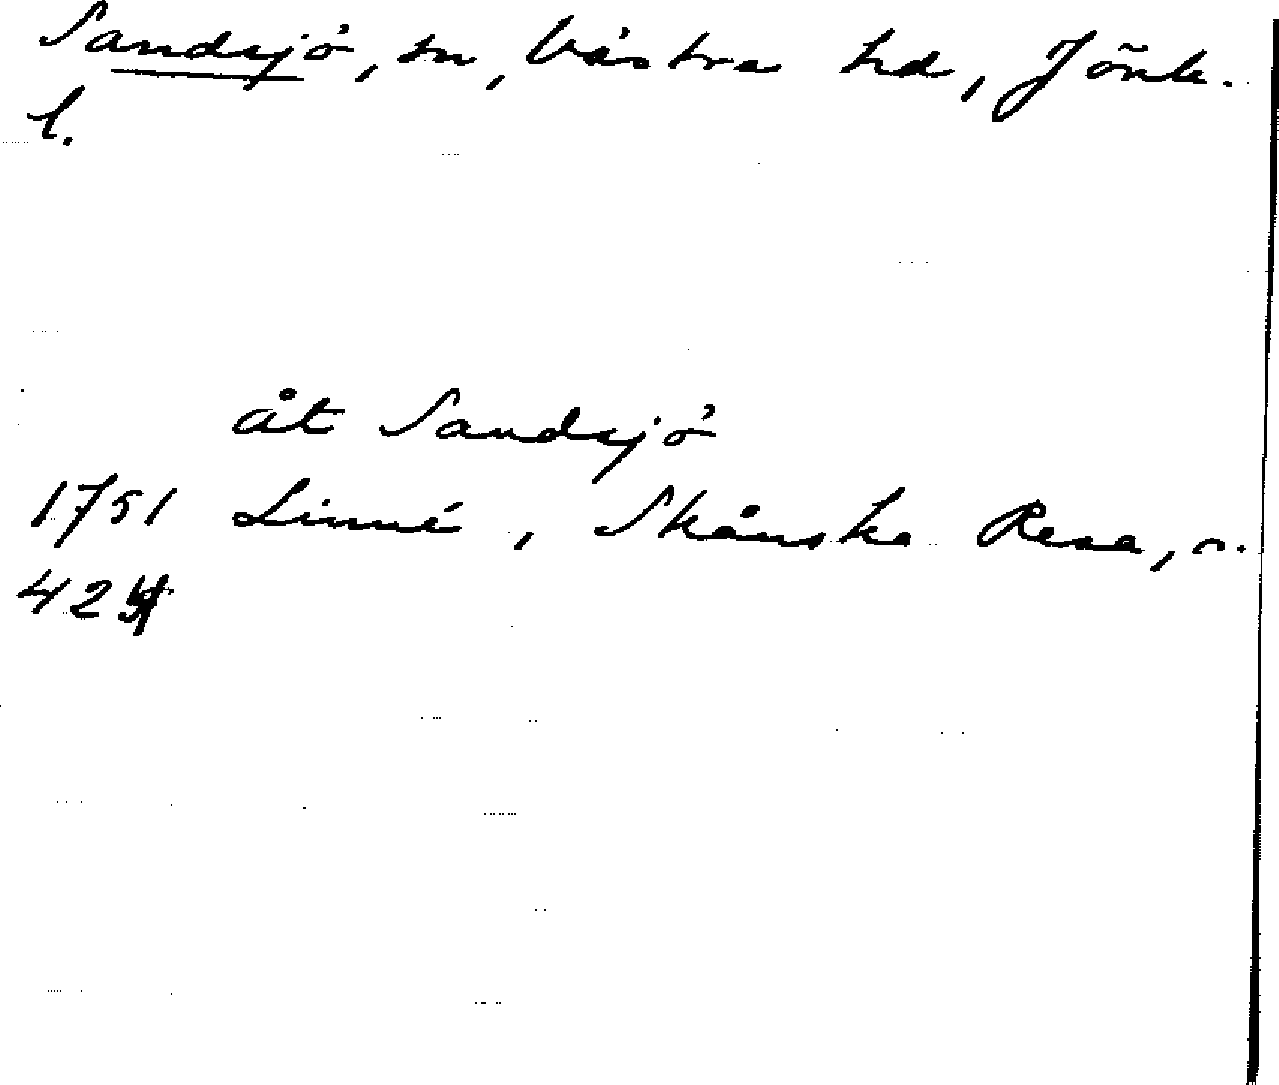 Sandsjö, sn, Västra hd, Jönk.
l.
åt Sandsjö
1751 Linné, Skånska Resa, s.
424